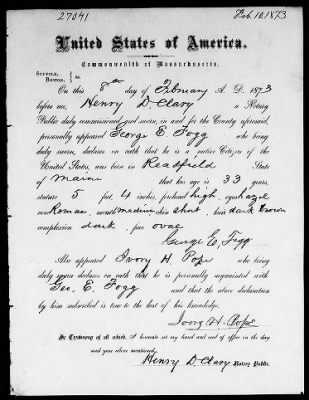 27041
Feb. 10. 1873
United States of America.
Commonwealth of Massachusetts.
Suffolk,
Boston, ss.
On this 8th day of February A. D. 1873
before me, Henry D. Clary a Notary
Public duly commissioned and sworn, in and for the County aforesaid,
personally appeared George E. Fogg who being
duly sworn, declares on oath that he is a native Citizen of the
United States, was born in Readfield State
of Maine that his age is 33 years,
stature 5 feet, 4 inches, forehead high, eyes hazel
nose Roman, mouth medium chin short, hair dark brown
complexion dark, face oval
George E. Fogg
Also appeared Ivory H. Pope who being
duly sworn declares on oath that he is personally acquainted with
Geo. E. Fogg and that the above declaration
by him subscribed is true to the best of his knowledge.
Ivory H. Pope
In Testimony of all which, I hereunto set my hand and seal of office on the day
and year above mentioned.
Henry D. Clary Notary Public.